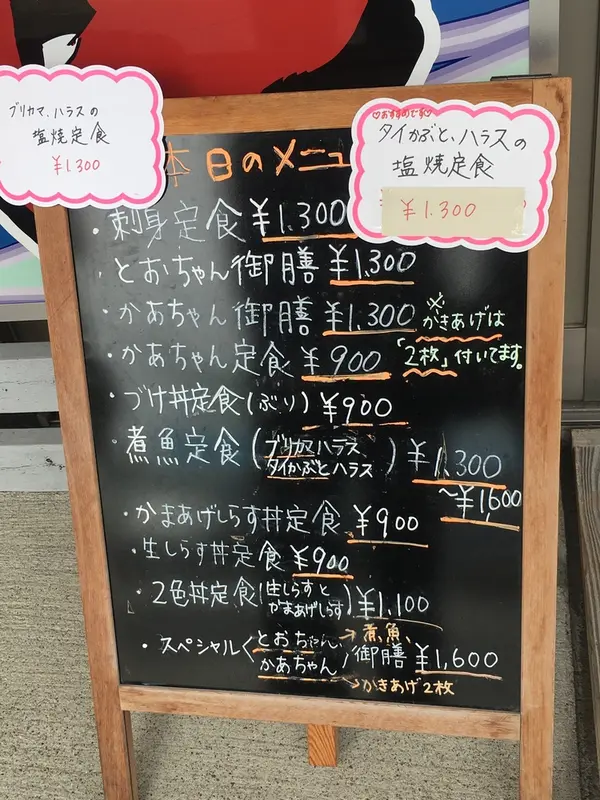 ブリカマ、ハラスの
塩焼定食
¥1300
♡おすすめです♡
タイかぶと、ハラスの
塩焼定食
¥1.300
本日のメニュ
・刺身定食 ¥1.300
・とおちゃん御膳 ¥1.300
・かあちゃん御膳 ¥1.300
・かあちゃん定食 ¥900
※かきあげは
「2枚」付いてます。
・づけ丼定食(ぶり) ¥900
・煮魚定食(ブリカマハラス
タイかぶとハラス) ¥1,300
〜¥1,600
・かまあげしらす丼定食 ¥900
・生しらす丼定食 ¥900
・2色丼定食(生しらすと
かまあげしらす) ¥1,100
・スペシャル〈とおちゃん→煮魚、
かあちゃん〉御膳 ¥1,600
→かきあげ2枚